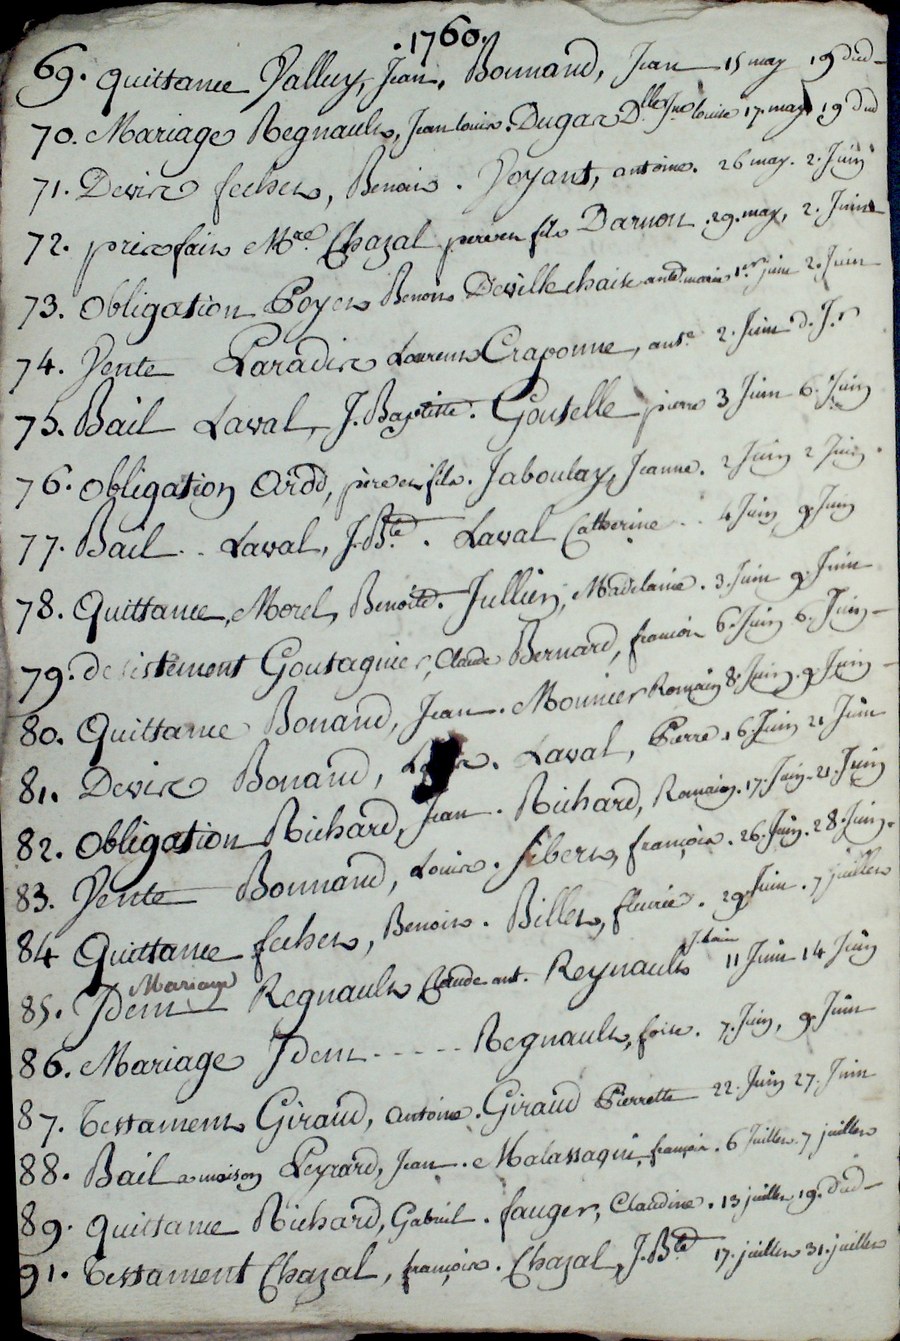 .1760.
69. quittance Valluy, Jean. Bonnand, Jean 15 may 19 dud
70. Mariage Regnault, Jean louis. Dugas Dlle Jne louise 17. may, 19 dud
71. Devis fechet, Benois. Voyant, antoine. 26 may. 2. Juin
72. prixfait Mre. Chazal pere et fils Darnon .29. may, 2. Juin
73. Obligation Poyet Benoit Devillechaise antd. marie 1er. Juin 2. Juin
74. Vente Paradis Laurent Craponne, ante. 2. Juin d. J.r
75. Bail Laval, J. Baptiste. Goutelle pierre 3 Juin 6. Juin
76. Obligation Ardd, père et fils. Jaboulay, Jeanne. 2 Juin 2 Juin.
77. Bail .. Laval, J. Bte. Laval Catherine .. 4 Juin 9 Juin
78. Quittance, Morel, Benoite. Jullien, Madelaine. 3. Juin 9. Juin
79. desistement Goutagnier, Claude Bernard, francois 6. Juin 6. Juin
80. Quittance Bonand, Jean. Monnier Romain 8. Juin. 9 Juin
81. Devis Bonand, . Laval, Pierre. 16. Juin 21 Juin
82. Obligation Richard, Jean. Richard, Romain. 17. Juin. 21. Juin
83. Vente Bonnand, Louis. fibert, françois. 26. Juin. 28. Juin.
84 Quittance fechet, Benois. Billet, fleurie. 29 Juin. 7 juillet
85. Idem Mariage Regnault Claude ant. Reynault 11 Juin 14 Juin
86. Mariage Idem ----- Regnault, foise. 7. Juin, 9. Juin
87. Testament Giraud, antoine. Giraud Pierrette 22. Juin 27. Juin
88. Bail a moison Peyrard, Jean. Malassagni, françois. 6 Juillet 7 juillet
89. quittance Richard, Gabriel. fauger, Claudine. 13 juillet 19. dud
91. Testament Chazal, françois. Chazal, J. Bte 17. juillet 31. juillet